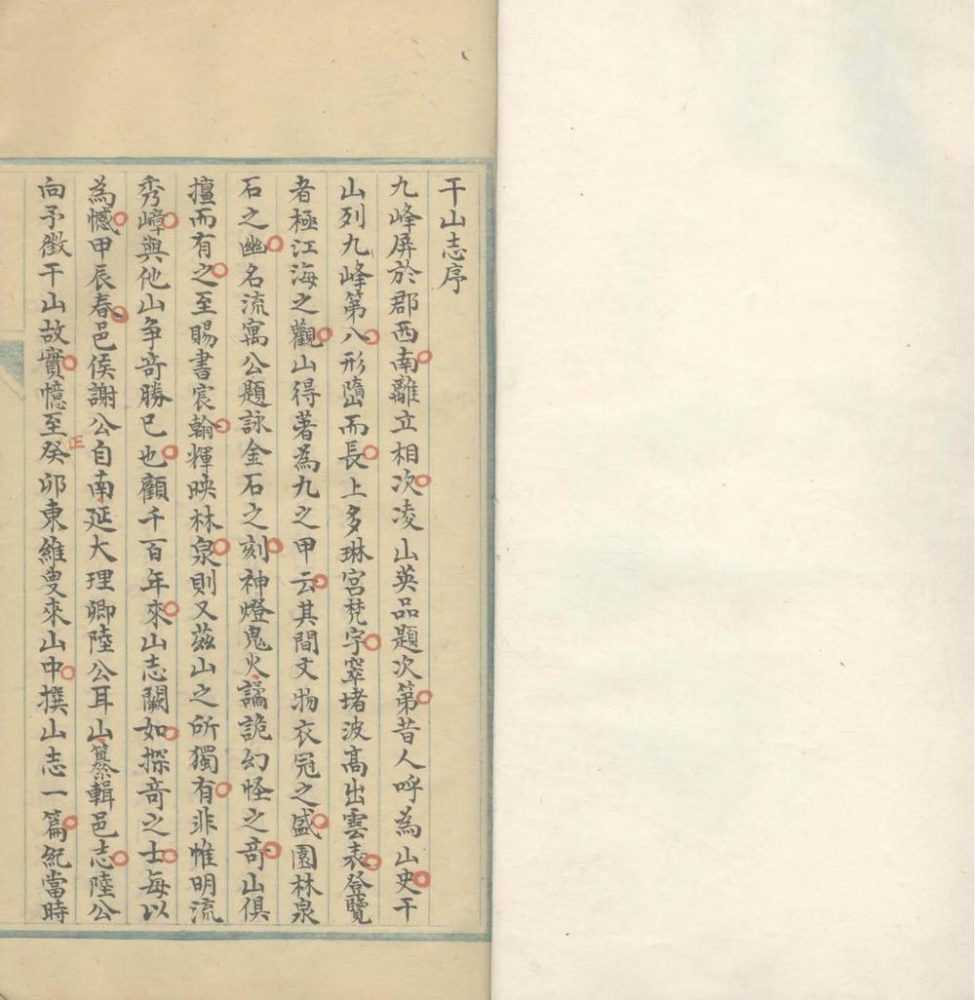 干山志序
九峰屏於郡西南離立相次凌山英品題次第昔人呼為山史干
山列九峰第八形隋而長上多琳宮梵宇窣堵波高出雲表登覽
者極江海之觀山得著為九之甲云其間文物衣冠之盛園林泉
石之幽名流寓公題詠金石之刻神燈鬼火譎詭幻怪之奇山俱
擅而有之至賜書宸翰輝映林泉則又茲山之所獨有非惟明流
秀嶂與他山爭奇勝已也顧千百年來山志闕如探奇之士每以
為憾甲辰春邑侯謝公自南延大理卿陸公耳山纂輯邑志陸公
向予徵干山故實憶至癸卯東維叟來山中撰山志一篇紀當時
正